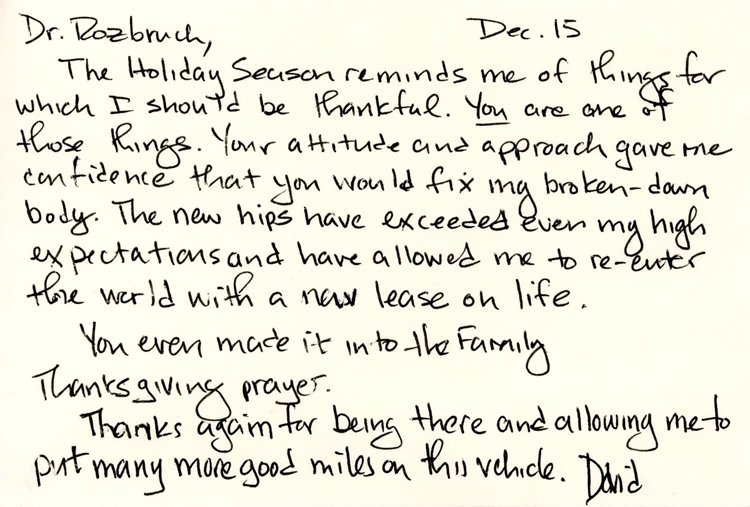 Dr. Rozbruch, Dec. 15
The Holiday Season reminds me of things for
which I should be thankful. You are one of
those things. Your attitude and approach gave me
confidence that you would fix my broken-down
body. The new hips have exceeded even my high
expectations and have allowed me to re-enter
the world with a new lease on life.
You even made it into the Family
Thanksgiving prayer.
Thanks again for being there and allowing me to
put many more good miles on this vehicle. David